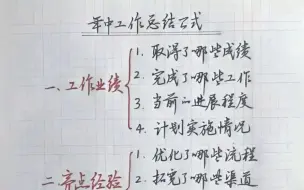 年中工作总结公式
一、工作业绩
1. 取得了哪些成绩
2. 完成了哪些工作
3. 当前的进展程度
4. 计划实施情况
二、亮点经验
1. 优化了哪些流程
2. 拓宽了哪些渠道